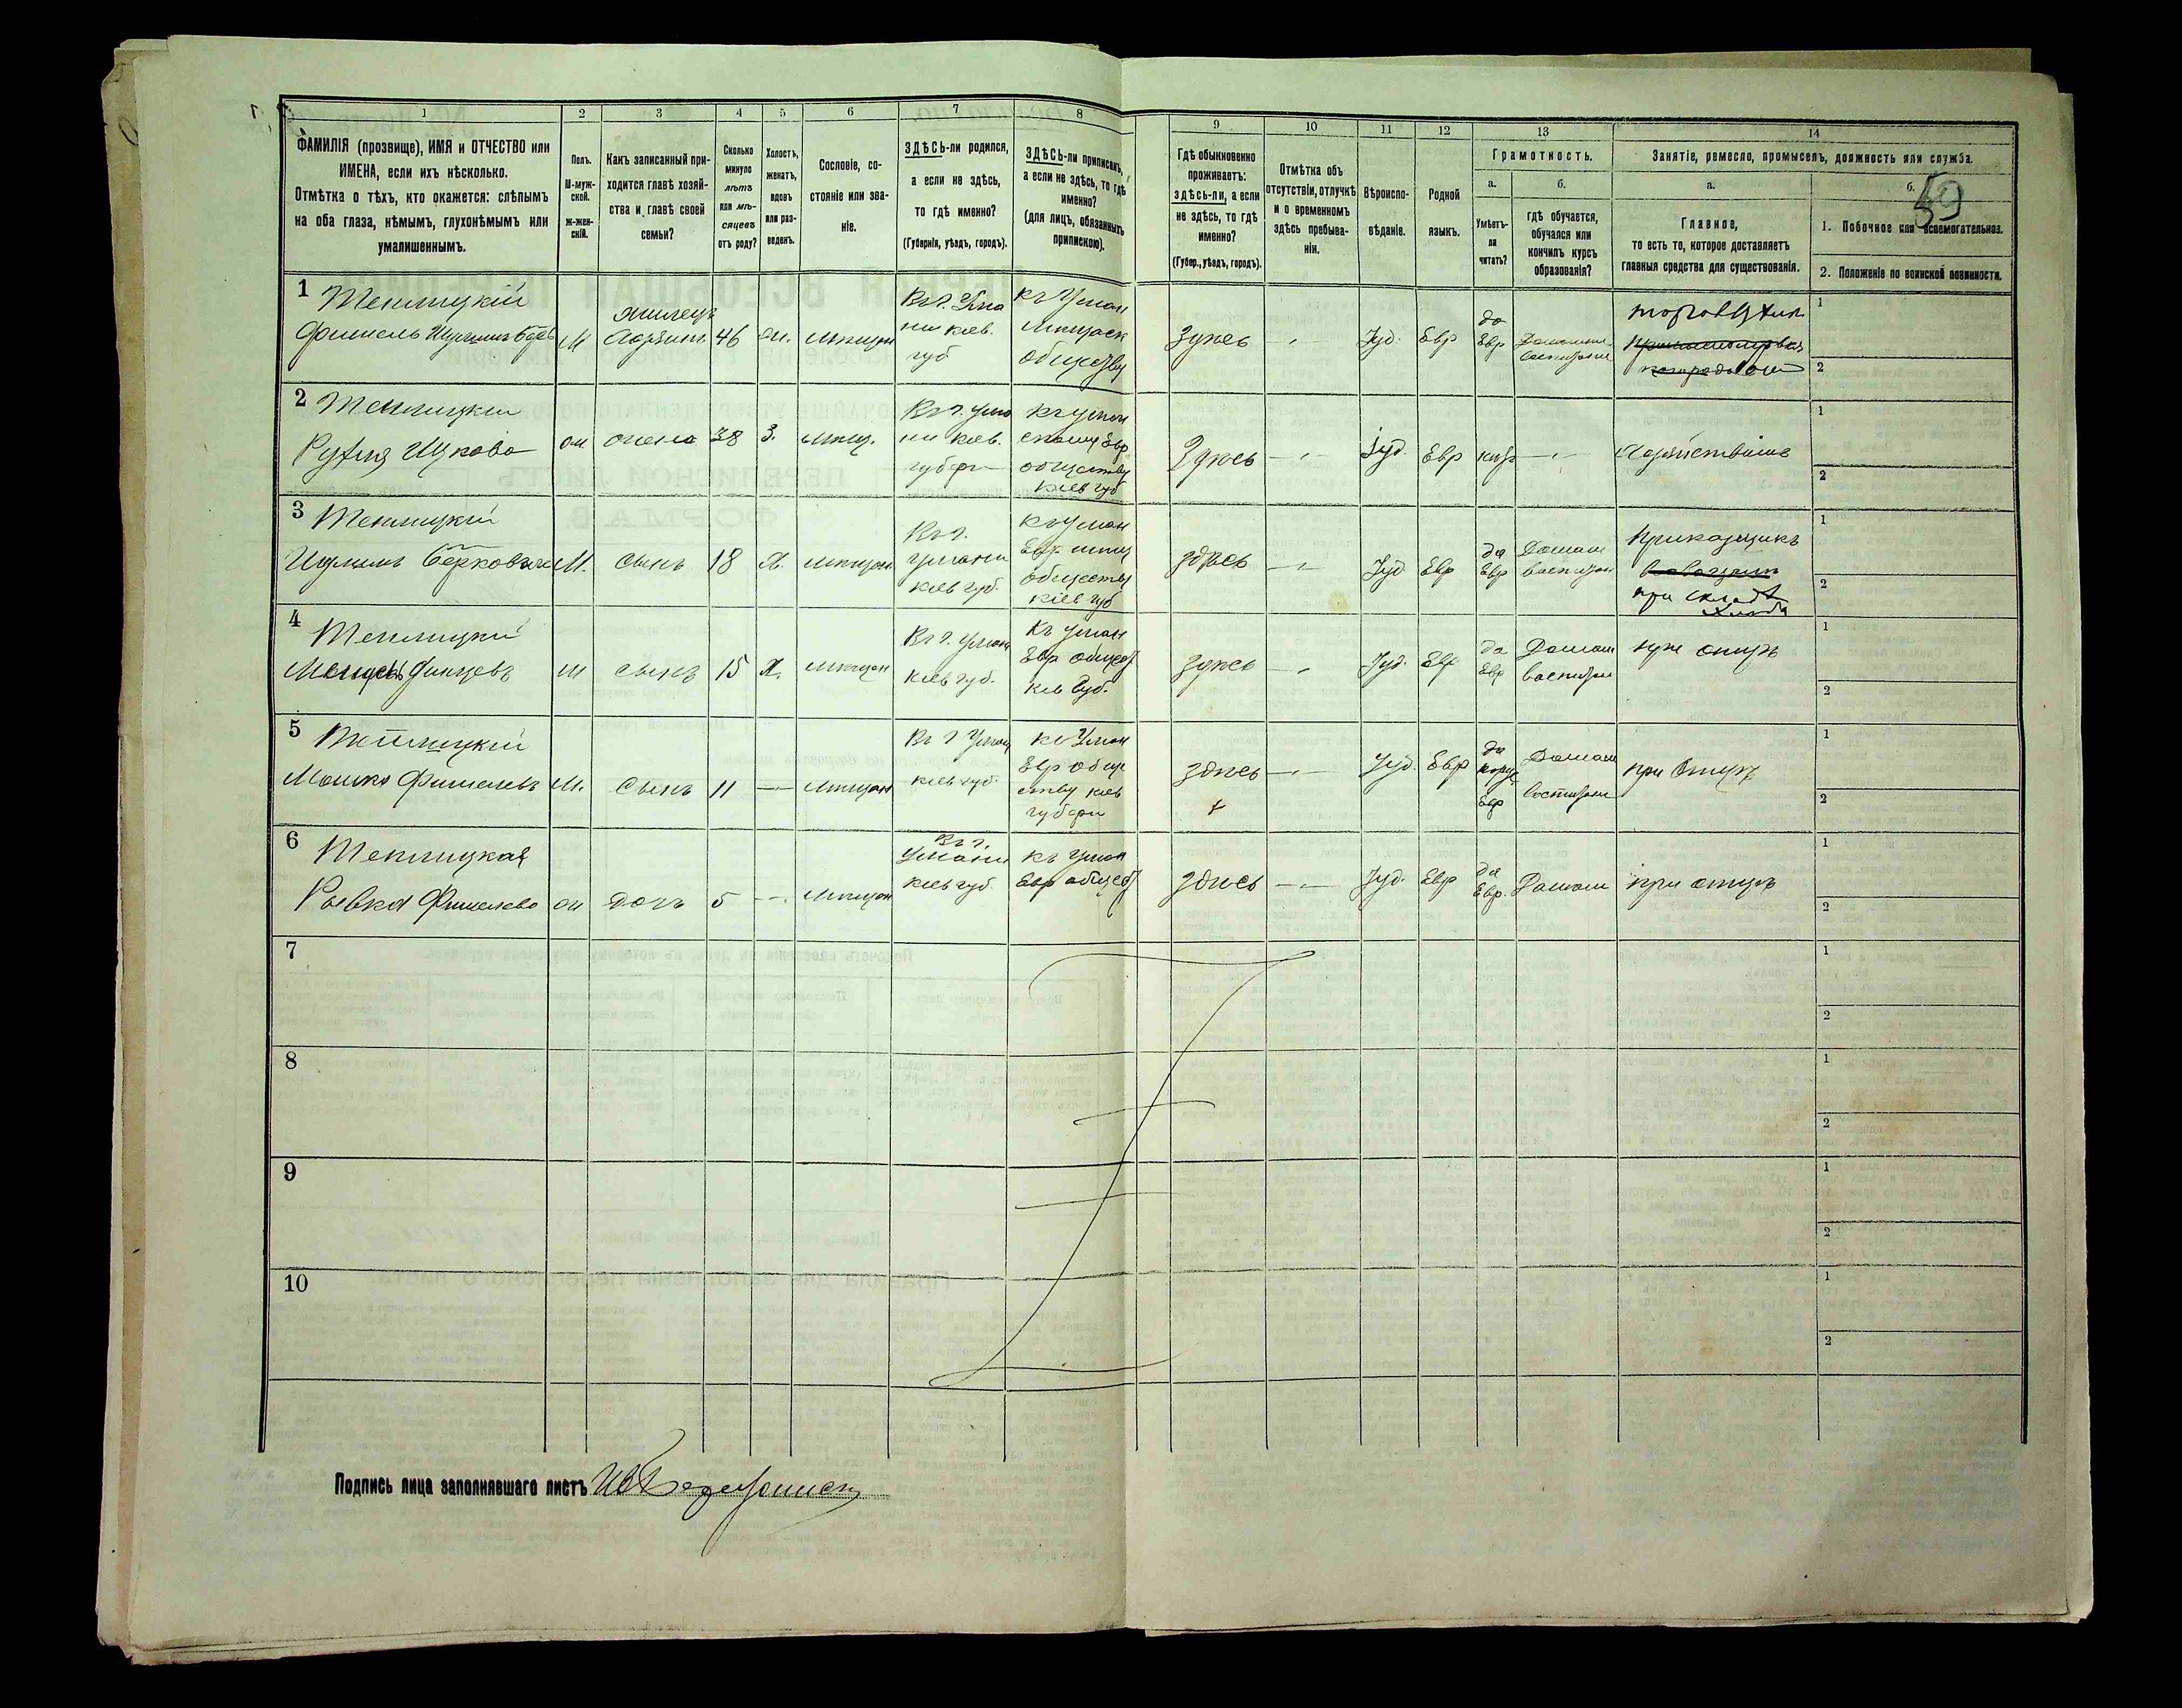 1 2 3 4 5 6 7 8 9 10 11 12 13 14
ФАМИЛІЯ (прозвище), ИМЯ и ОТЧЕСТВО или
ИМЕНА, если ихъ нѣсколько.
Отмѣтка о тѣхъ, кто окажется: слѣпымъ
на оба глаза, нѣмымъ, глухонѣмымъ или
умалишеннымъ.
Полъ.
М-муж-
ской.
ж-жен-
скій.
Какъ записанный при-
ходится главѣ хозяй-
ства и главѣ своей
семьи?
Сколько
минуло
лѣтъ
или мѣ-
сяцевъ
отъ роду?
Холостъ,
женатъ,
вдовъ
или раз-
веденъ.
Сословіе, со-
стояніе или зва-
ніе.
ЗДѢСЬ-ли родился,
а если не здѣсь,
то гдѣ именно?
(Губернія, уѣздъ, городъ).
ЗДѢСЬ-ли приписанъ,
а если не здѣсь, то гдѣ
именно?
(для лицъ, обязанныхъ
припискою).
Гдѣ обыкновенно
проживаетъ:
здѣсь-ли, а если
не здѣсь, то гдѣ
именно?
(Губер., уѣздъ, городъ).
Отмѣтка объ
отсутствіи, отлучкѣ
и о временномъ
здѣсь пребыва-
ніи.
Вѣроиспо-
вѣданіе.
Родной
языкъ.
Грамотность.
а.
Умѣетъ-
ли
читать?
б.
гдѣ обучается,
обучался или
кончилъ курсъ
образованія?
Занятіе, ремесло, промыселъ, должность или служба.
а.
Главное,
то есть то, которое доставляетъ
главныя средства для существованія.
б.
59
1. Побочное или вспомогательное.
2. Положеніе по воинской повинности.
1
Теплицкій
Фишель
М
46
мѣщан
Въ г. Ума
ни кіев.
губ
къ Уман
мѣщанск
обществу
Здѣсь
Іуд.
Евр
да
Евр
1
2
2
Теплицкій
жена
38
З.
мѣщ.
Въ г. Ума
ни кіев.
губерн
къ Уман
скому Евр
обществу
Кіев губ
Здѣсь
Іуд
Евр
1
2
3
Теплицкій
Берковъ
М.
сынъ
18
Х.
мѣщан
Въ г.
Умани
кіев губ.
къ Уман
Евр мѣщ
обществу
кіев губ
здѣсь
Іуд
Евр
да
Евр
Домаш
воспитан
прикащикъ
при складѣ
хлѣба
1
2
4
Теплицкій
м
сынъ
15
Х.
мѣщан
Въ г. Умани
кіев губ.
Къ Уман
Евр общес
кіев губ.
здѣсь
Іуд.
Евр
да
Евр
Домаш
воспитан
при отцѣ
1
2
5
Теплицкій
Мошко Фишелевъ
М.
сынъ
11
мѣщан
Въ г Умани
кіев губ.
къ Уман
Евр обще
ству кіев
губерн
здѣсь
Іуд.
Евр
да
Евр
Домаш
воспитан
при отцѣ
1
2
6
Теплицкая
Рывка Фишелева
ж
дочь
5
мѣщан
Въ г.
Умани
кіев губ.
къ Уман
Евр общес
здѣсь
Іуд.
Евр
да
Евр.
Домаш
при отцѣ
1
2
7
1
2
8
1
2
9
1
2
10
1
2
Подпись лица заполнявшаго листъ